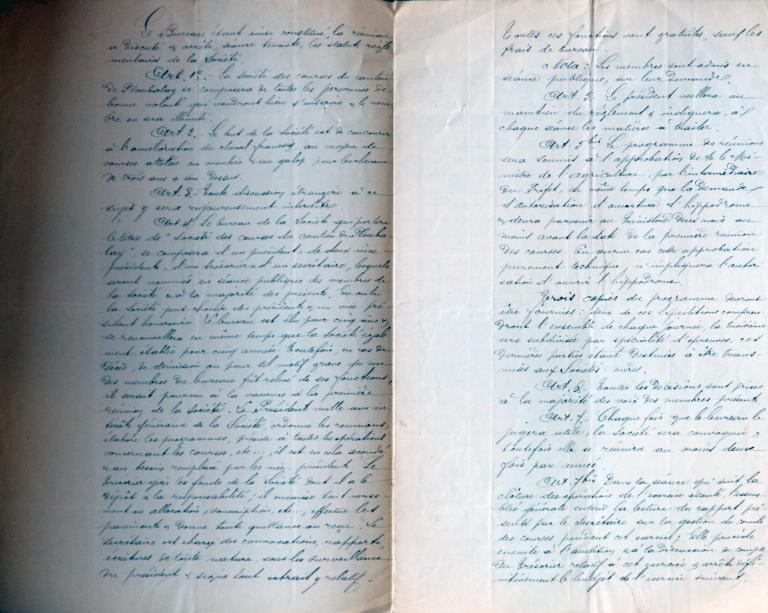 Le Bureau étant ainsi constitué, la réunion
a discuté & arrêté, séance tenante, les statuts régle-
mentaires de la Société.
Art. 1er. La Société des courses du canton
de Ploubalay se composera de toutes les personnes de
bonne volonté qui voudront bien s'inscrire, le nom-
bre en sera illimité.
Art 2. Le but de la Société est de concourir
à l'amélioration du cheval français, au moyen de
courses attelées ou montées au galop pour
de trois ans & au dessus.
Art. 3. Toute discussion étrangère à ce
sujet y sera rigoureusement interdite.
Art 4. Le bureau de la Société qui portera
le titre de "Société des courses du canton de Plouba-
lay" se composera d'un président, de deux vice-
présidents, d'un trésorier & d'un secrétaire, lesquels
seront nommés en séance publique des membres de
la société & à la majorité des présents. En outre
la Société peut choisir des présidents & un vice prési-
dent honoraires. Le bureau est élu pour cinq ans &
se renouvellera en même temps que la société égale-
ment établie pour cinq années. Toutefois, en cas de
décès, de démission ou pour tel motif grave qu'un
des membres du bureau fût relevé de ses fonctions,
il serait pourvu à la vacance à la première
réunion de la Société. Le Président veille aux in-
térêts généraux de la Société, ordonne les réunions,
élabore les programmes, préside à toutes les opérations
concernant les courses, etc... il est en cela secondé
& au besoin remplacé par les vice-présidents. Le
trésorier gère les fonds de la Société dont il a le
dépôt & la responsabilité; il encaisse tout verse-
ment ou allocation, souscription, etc., effectue les
paiements & donne toute quittance ou reçu. Le
secrétaire est chargé des convocations, rapports,
écritures de toute nature, sous la surveillance
du président & signe tout extrait y relatif.
Toutes ces fonctions sont gratuites, sauf les
frais de bureau.
Nota: Les membres sont admis en
séance publique, sur leur demande.
Art 5. Le président veillera au
maintien du règlement & indiquera, à
chaque séance les matières à traiter.
Art. 5bis Le programme des réunions
sera soumis à l'approbation de M. le Mi-
nistre de l'agriculture, par l'intermédiaire
du Préfet, en même temps que la demande
d'autorisation d'ouverture d'hippodrome
& devra parvenir au Ministère deux mois au
moins avant la date de la première réunion
des courses. En aucun cas cette approbation
purement technique n'impliquera l'autori-
sation d'ouvrir l'hippodrome.
Trois copies du programme devront
être fournies: deux de ces expéditions compren-
dront l'ensemble de chaque journée, la troisième
sera subdivisée par spécialité d'épreuves, ces
dernières parties étant destinées à être trans-
mises aux Sociétés mères.
Art. 6. Toutes les décisions sont prises
à la majorité des voix des membres présents.
Art. 7. Chaque fois que le bureau le
jugera utile, la Société sera convoquée,
toutefois elle se réunira au moins deux
fois par année.
Art. 7bis Dans la séance qui suit la
clôture des opérations de l'exercice écoulé l'assem-
blée générale entend la lecture du rapport pré-
senté par le Secrétaire sur la gestion du comité
des courses pendant cet exercice; Elle procède
ensuite à l'audition & à la discussion du compte
du trésorier relatif à cet exercice & arrête défi-
nitivement le budget de l'exercice suivant.